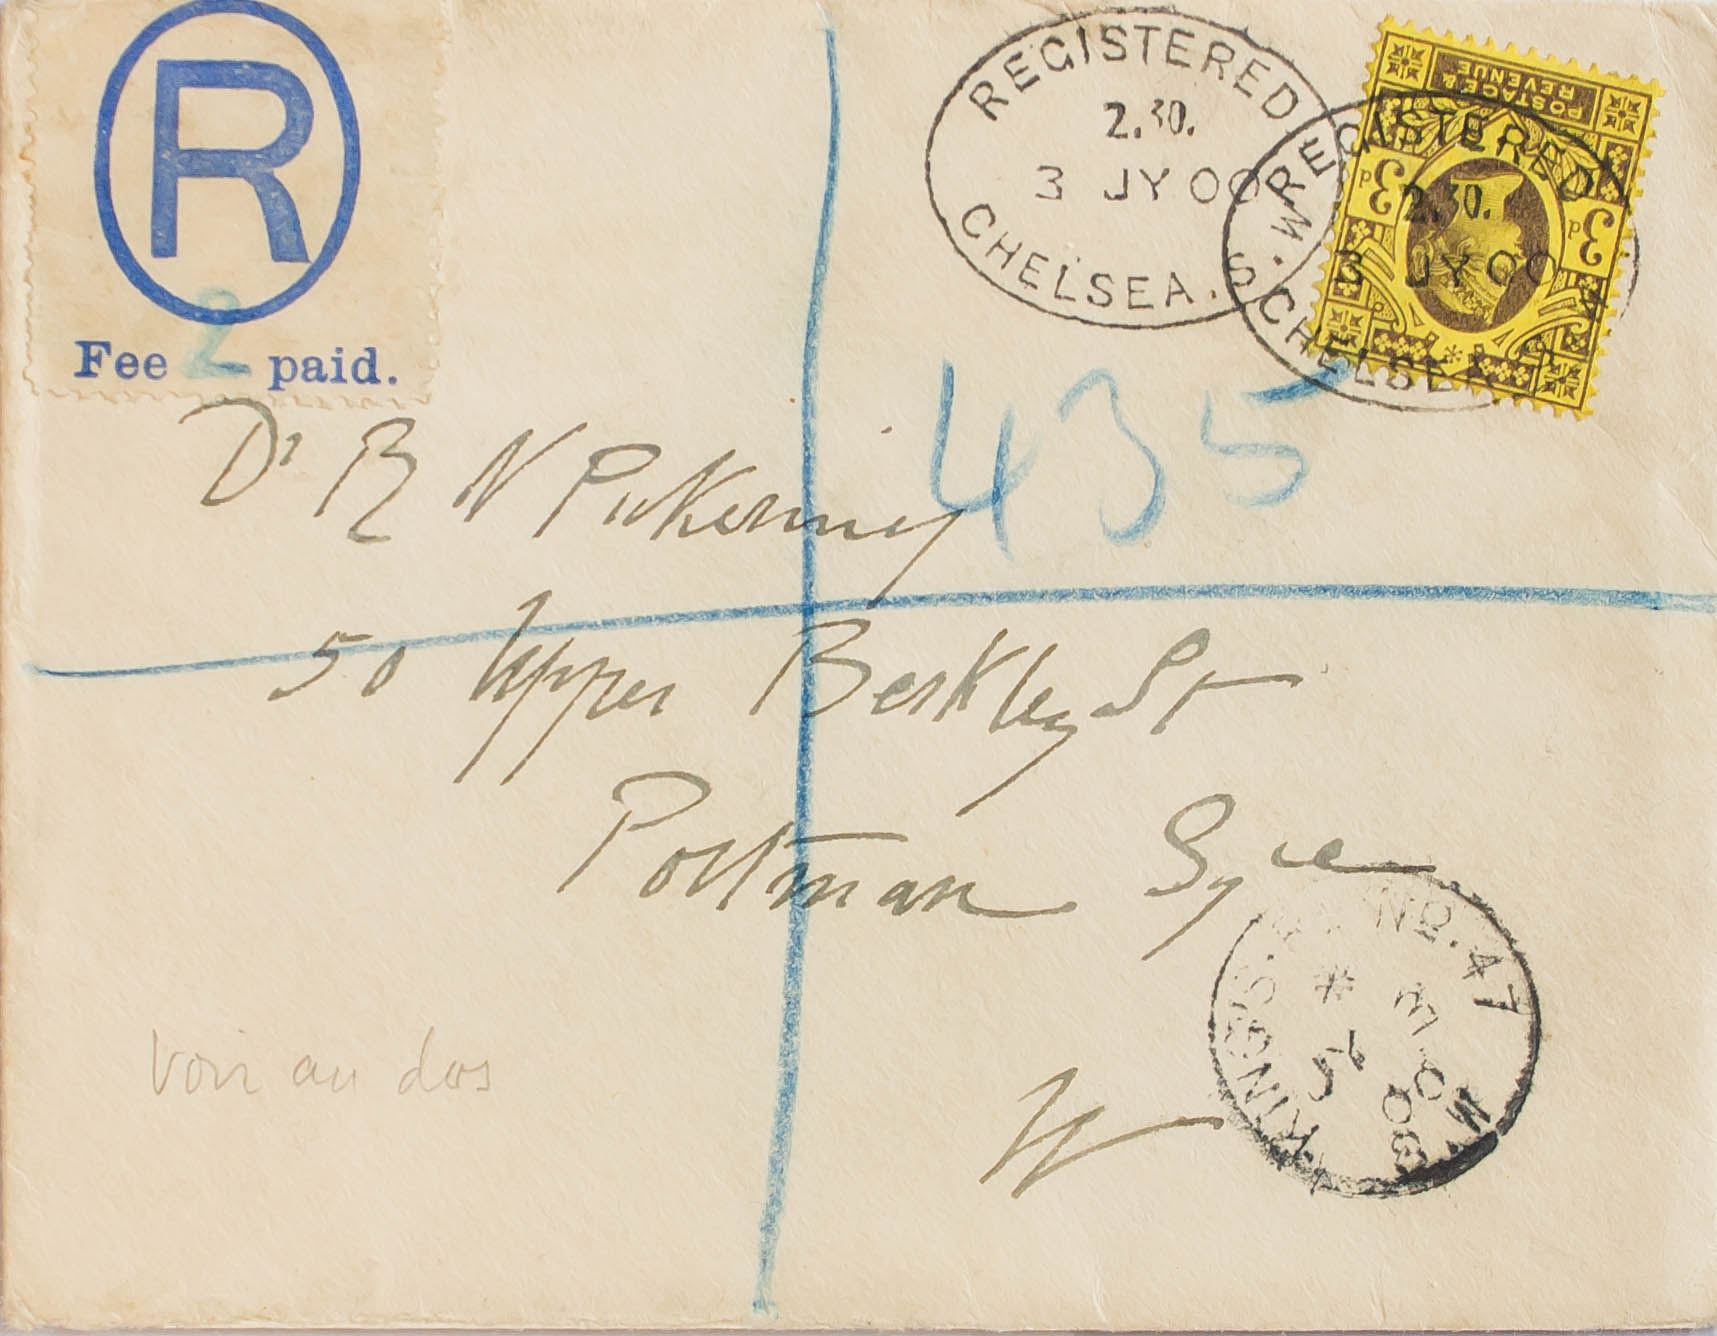 R
Fee 2 paid.
REGISTERED.
2.30.
3 JY 00
CHELSEA. S.W.
REGISTERED
2.30.
3 JY 00
CHELSEA S.W.
POSTAGE &
REVENUE
3D 3D
435
Dr R N Pickenney
50 Upper Berkley St
Portman Sqre
W
voir au dos
NO. 47
JY 3 00